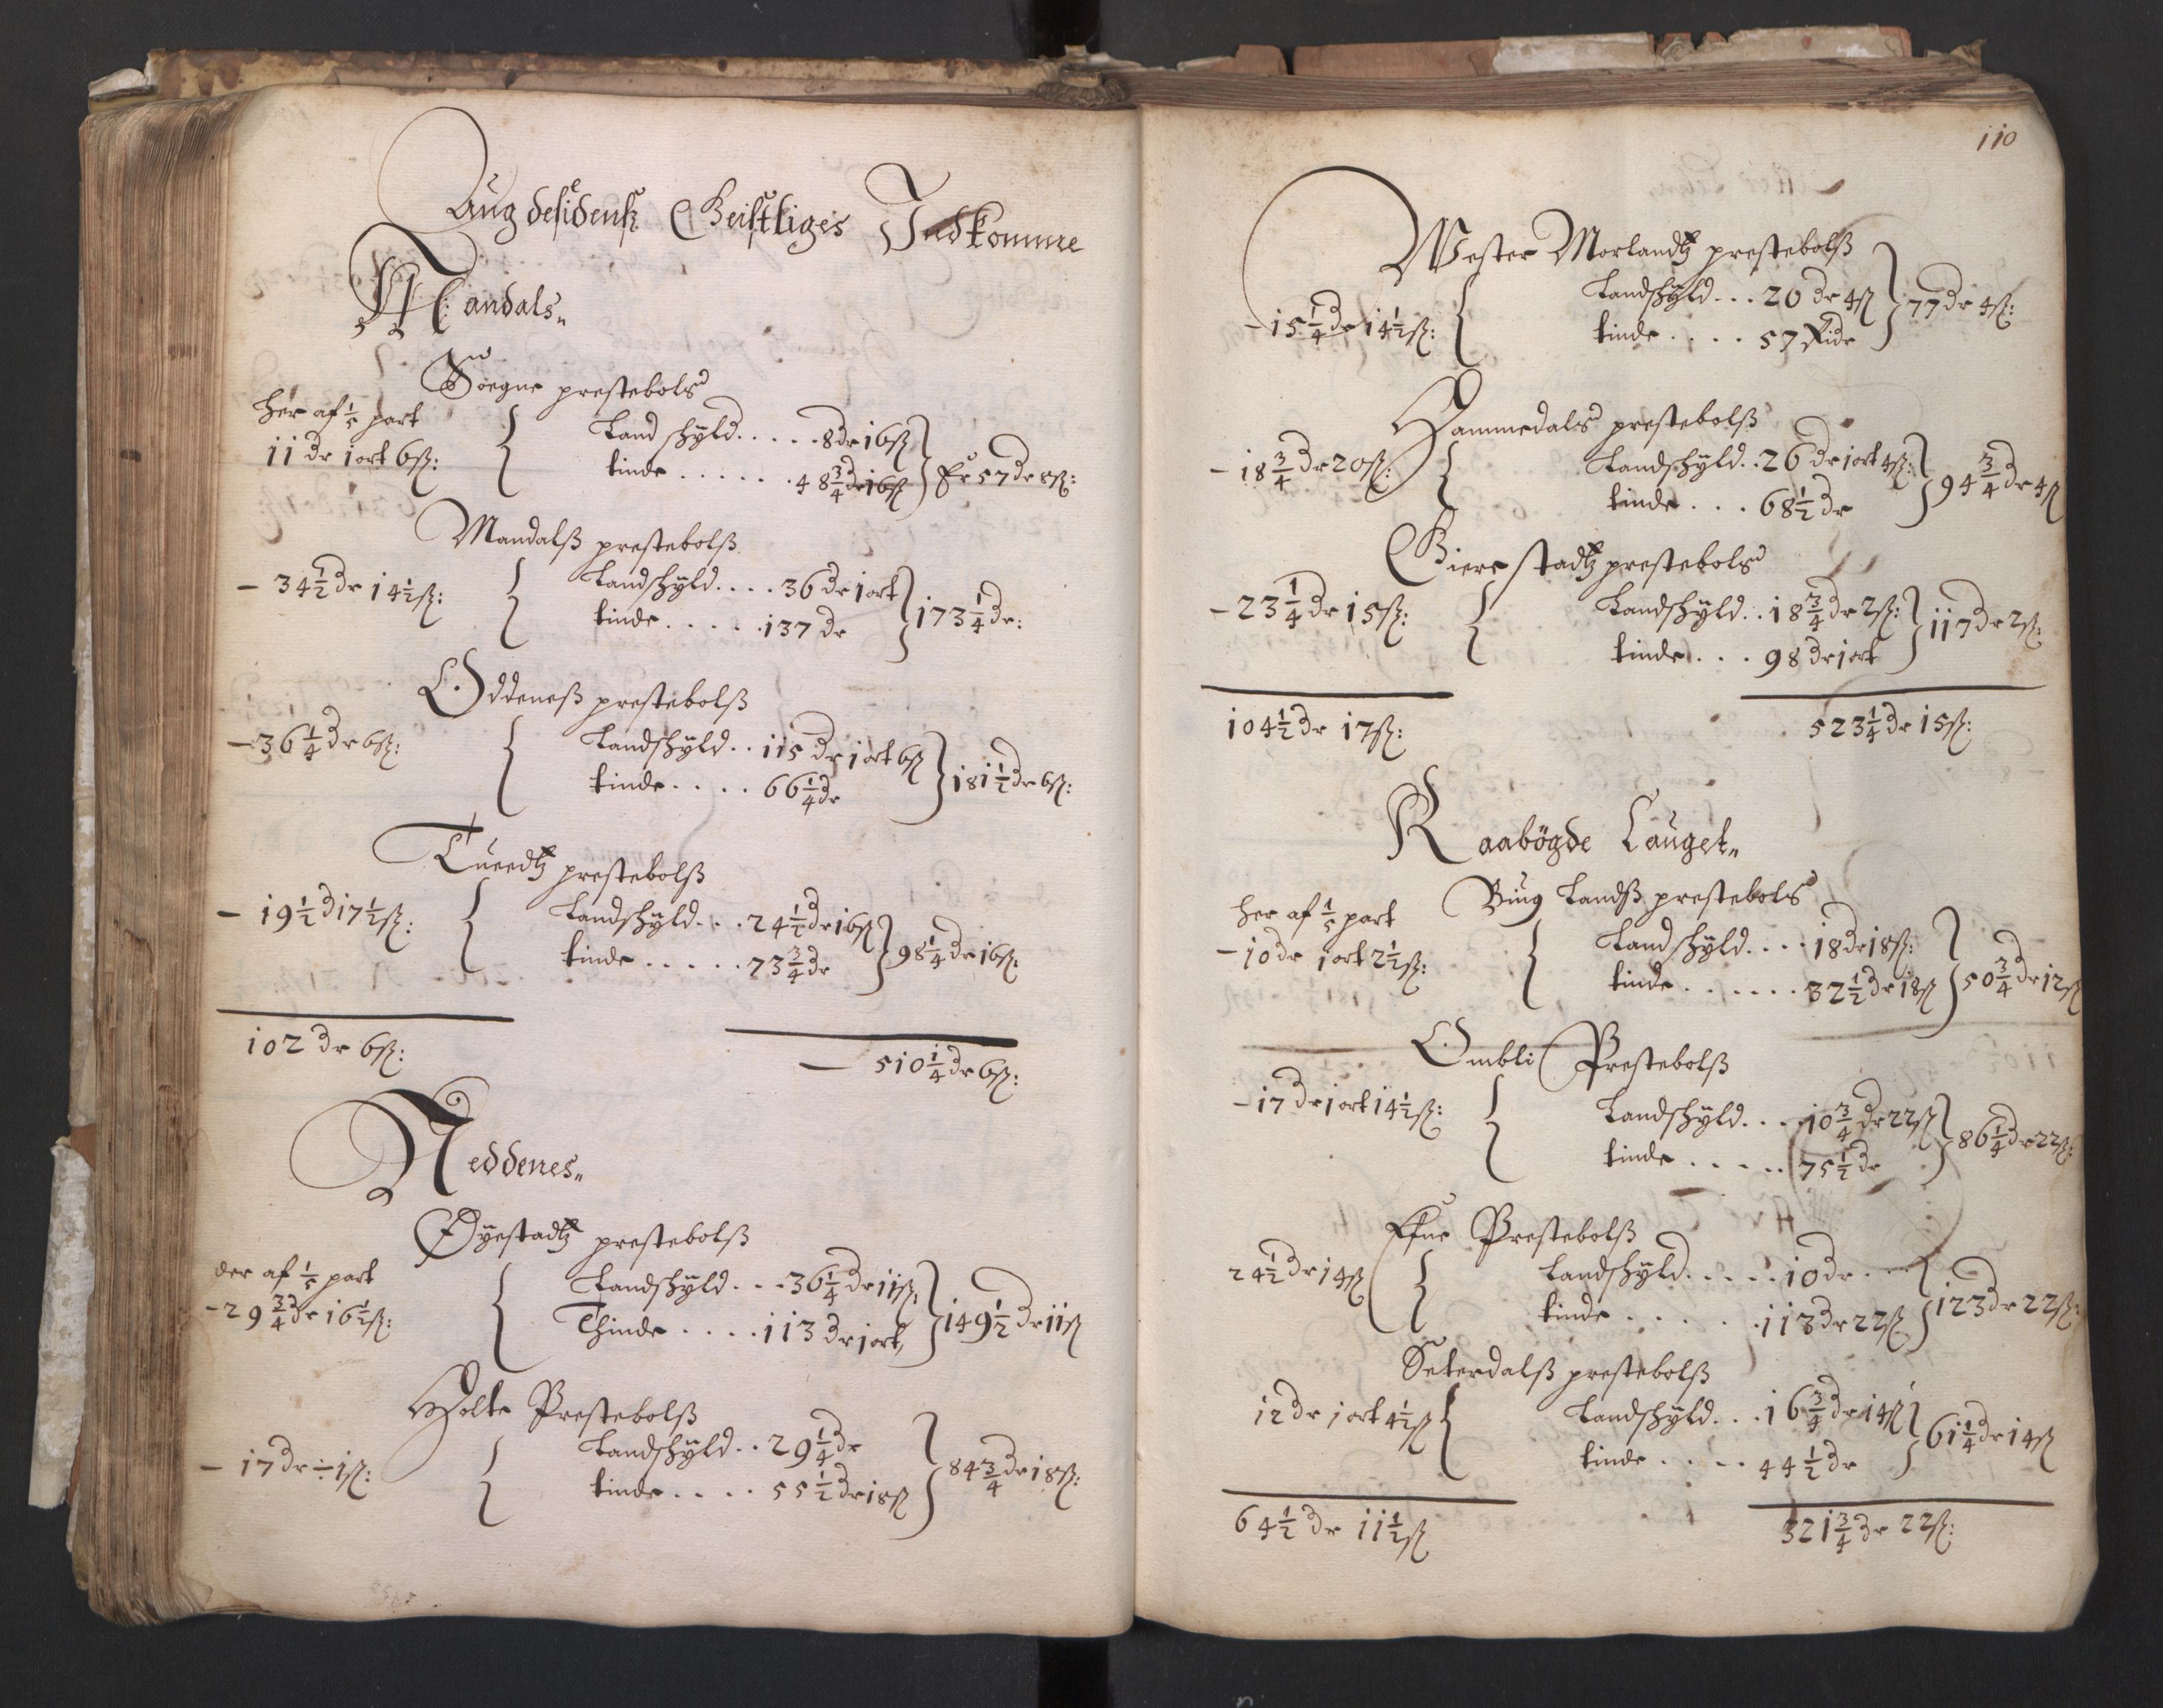 Aug desidensz Geistliges Indkomme
Mandals„
Soegne prestebols
her af 1/5 part
11 dr 1 ort 6 ß:
Landskyld..... 8 dr 16 ß
tinde ...... 48 3/4 dr 16 ß
Er 57 dr 8 ß:
Mandalß prestebolß
- 34 1/2 dr 14 1/2 ß:
Landskyld.... 36 dr 1 ort
tinde ..... 137 dr
173 1/4 dr:
Oddeneß prestebolß
- 36 1/4 dr 6 ß:
Landskyld.. 115 dr 1 ort 6 ß
tinde.... 66 1/4 dr
181 1/2 dr 6 ß:
Tueedtz prestebolß
- 19 1/2 d 17 1/2 ß:
Landskyld... 24 1/2 dr 16 ß
tinde ..... 73 3/4 dr
98 1/4 dr 16 ß:
102 dr 6 ß:
— 510 1/4 dr 6 ß:
Neddenes„
Øyestadtz prestebolß
der af 1/5 part
- 29 3/4 dr 16 1/2 ß:
Landskyld... 36 1/4 dr 11 ß
Thinde .... 113 dr 1 ort
149 1/2 dr 11 ß
Holte Prestebolß
- 17 dr ÷ 1 ß:
Landskyld.. 29 1/4 dr
tinde.... 55 1/2 dr 18 ß
84 3/4 dr 18 ß:
110
Wester Morlandtz prestebolß
- 15 1/4 dr 14 1/2 ß:
Landskyld... 20 dr 4 ß
tinde .... 57 Ridr
77 dr 4 ß:
Hammedals prestebolß
- 18 3/4 dr 20 ß:
Landskyld.. 26 dr 1 ort 4 ß:
tinde ... 68 1/2 dr
94 3/4 dr 4 ß
Gierestadtz prestebols
- 23 1/4 dr 15 ß:
Landskyld.. 18 3/4 dr 2 ß:
tinde ... 98 dr 1 ort
117 dr 2 ß:
104 1/2 dr 17 ß:
523 1/4 dr 15 ß:
Raabögde Lauget„
Biug Landß prestebols
her af 1/5 part
- 10 dr 1 ort 2 1/2 ß:
Landskyld.... 18 dr 18 ß:
tinde ...... 32 1/2 dr 18 ß
50 3/4 dr 12 ß
Ombli Prestebolß
- 17 dr 1 ort 14 1/2 ß:
Landskyld.... 10 3/4 dr 22 ß
tinde ..... 75 1/2 dr
86 1/4 dr 22 ß:
Efne Prestebolß
24 1/2 dr 14 ß
Landskyld..... 10 dr...
tinde ..... 113 dr 22 ß
123 dr 22 ß:
Seterdalß prestebolß
12 dr 1 ort 4 1/2 ß
Landskyld... 16 3/4 dr 14 ß
tinde .... 44 1/2 dr
61 1/4 dr 14 ß
64 1/2 dr 11 1/2 ß
321 3/4 dr 22 ß: